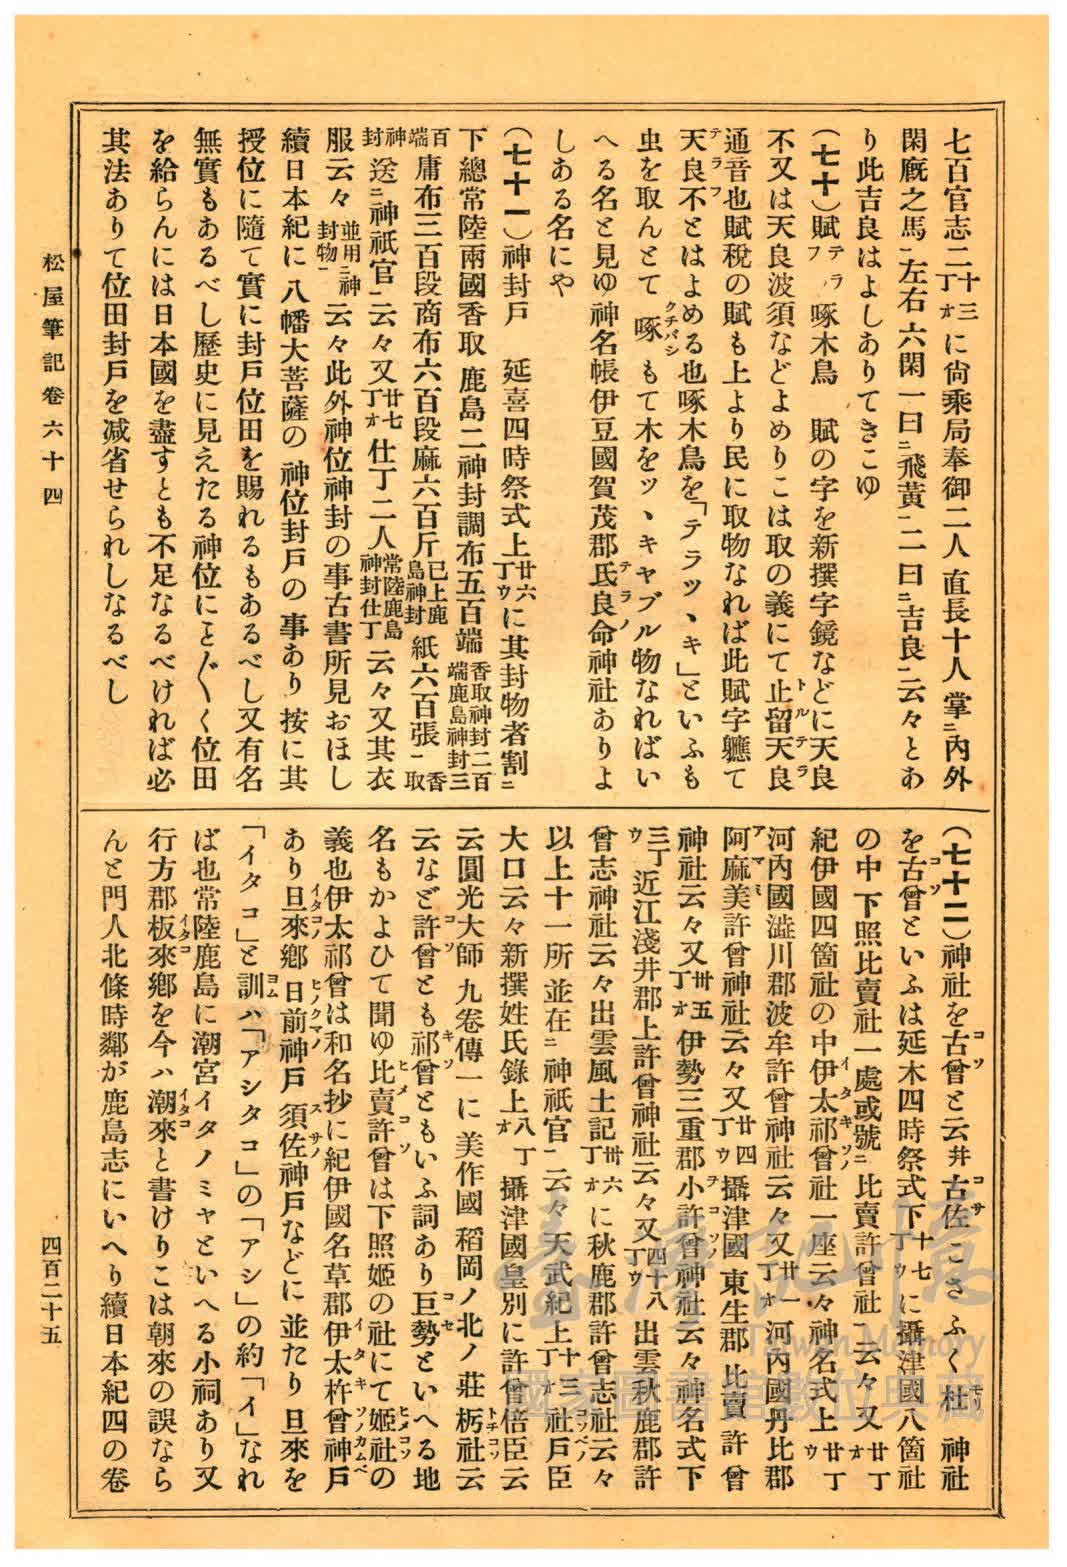 七百官志二十三丁オに尙乘局奉御二人直長十人掌ニ內外
閑廐之馬ー左右六閑一曰ニ飛黃ー二曰ニ吉良ー云々とあ
り此吉良はよしありてきこゆ
(七十)賦テラフ啄木鳥 賦の字を新撰字鏡などに天良
不又は天良波須などよめりこは取の義にて止留天良トルテラ
通音也賦稅の賦も上より民に取物なれば此賦字軈て
天良不テラフとはよめる也啄木鳥を「テラツヽキ」といふも
虫を取んとて啄クチバシもて木をツヽキヤブル物なればい
へる名と見ゆ神名帳伊豆國賀茂郡氐良命テラノ神社ありよ
しある名にや
(七十一)神封戸 延喜四時祭式上廿六丁ウに其封物者割ニ
下總常陸兩國香取鹿島二神封調布五百端香取神封二百端鹿島神封三
百端庸布三百段商布六百段麻六百斤已上鹿島神封紙六百張ー香取
神封送ニ神祇官ー云々又廿七丁オ仕丁二人常陸鹿島神封仕丁云々又其衣
服云々並用ニ神封物ー云々此外神位神封の事古書所見おほし
續日本紀に八幡大菩薩の神位封戸の事あり按に其
授位に隨て實に封戸位田を賜れるもあるべし又有名
無實もあるべし歷史に見えたる神位にこと〴〵く位田
を給らんには日本國を盡すとも不足なるべければ必
其法ありて位田封戸を减省せられしなるべし
(七十二)神社を古曾コソと云幷古佐コサこさふく杜モリ 神社
を古曾コソといふは延木四時祭式下十七丁ウに攝津國八箇社
の中下照比賣社一處或號ニ比賣許曾社ー云々又廿丁オ
紀伊國四箇社の中伊太祁曾イタキソノ社一座云々神名式上廿丁ウ
河內國澁川郡波牟許曾神社云々又廿一丁オ河內國丹比郡
阿麻美アマミ許曾神社云々又廿四丁ウ攝津國東生郡比賣許曾
神社云々又卅五丁オ伊勢三重郡小許曾ヲコソノ神社云々神名式下
三丁ウ近江淺井郡上許曾神社云々又四十八丁ウ出雲秋鹿郡許
曾志神社云々出雲風土記卅六丁オに秋鹿郡許曾志社コソベノ云々
以上十一所並在ニ神祇官ー云々天武紀上十三丁オ社戸臣
大口云々新撰姓氏錄上八丁オ攝津國皇別に許曾倍臣云
云圓光大師九卷傳一に美作國稻岡ノ北ノ莊栃社トチコソ云
云など許曾コソとも祁曾キソともいふ詞あり巨勢コセといへる地
名もかよひて聞ゆ比賣許曾ヒメコソは下照姬の社にて姬社ヒメコソの
義也伊太祁曾は和名抄に紀伊國名草郡伊太杵曾神戸イタキソノカムベ
あり旦來鄕イタコノ日前神戸ヒノクマノ須佐神戸スサノなどに並たり旦來を
「イタコ」と訓ヨムハ「アシタコ」の「アシ」の約「イ」なれ
ば也常陸鹿島に潮宮イタノミヤといへる小祠あり又
行方郡板來イタコ鄕を今ハ潮來イタコと書けりこは朝來の誤なら
んと門人北條時鄰が鹿島志にいへり續日本紀四の卷
松屋筆記卷六十四
四百二十五
臺灣記憶
Taiwan Memory
國家圖書館數位典藏